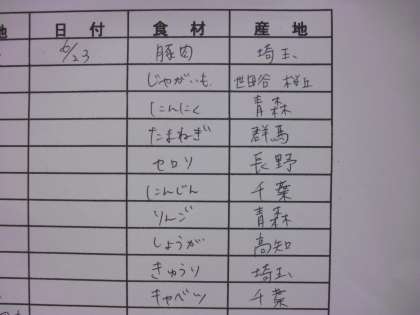 地 日付 食材 産地
6/23 豚肉 埼玉
じゃがいも 世田谷 桜丘
にんにく 青森
たまねぎ 群馬
セロリ 長野
にんじん 千葉
りんご 青森
しょうが 高知
きゅうり 埼玉
キャベツ 千葉